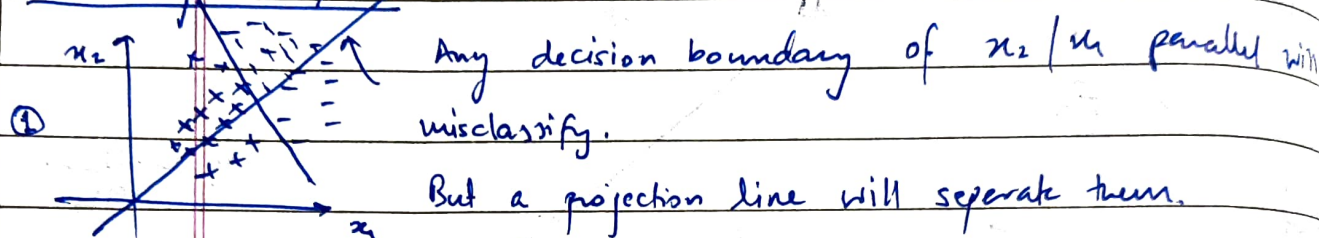 x2
Any decision boundary of x2 / x1 parallel will
①
misclassify.
But a projection line will seperate them.
x1